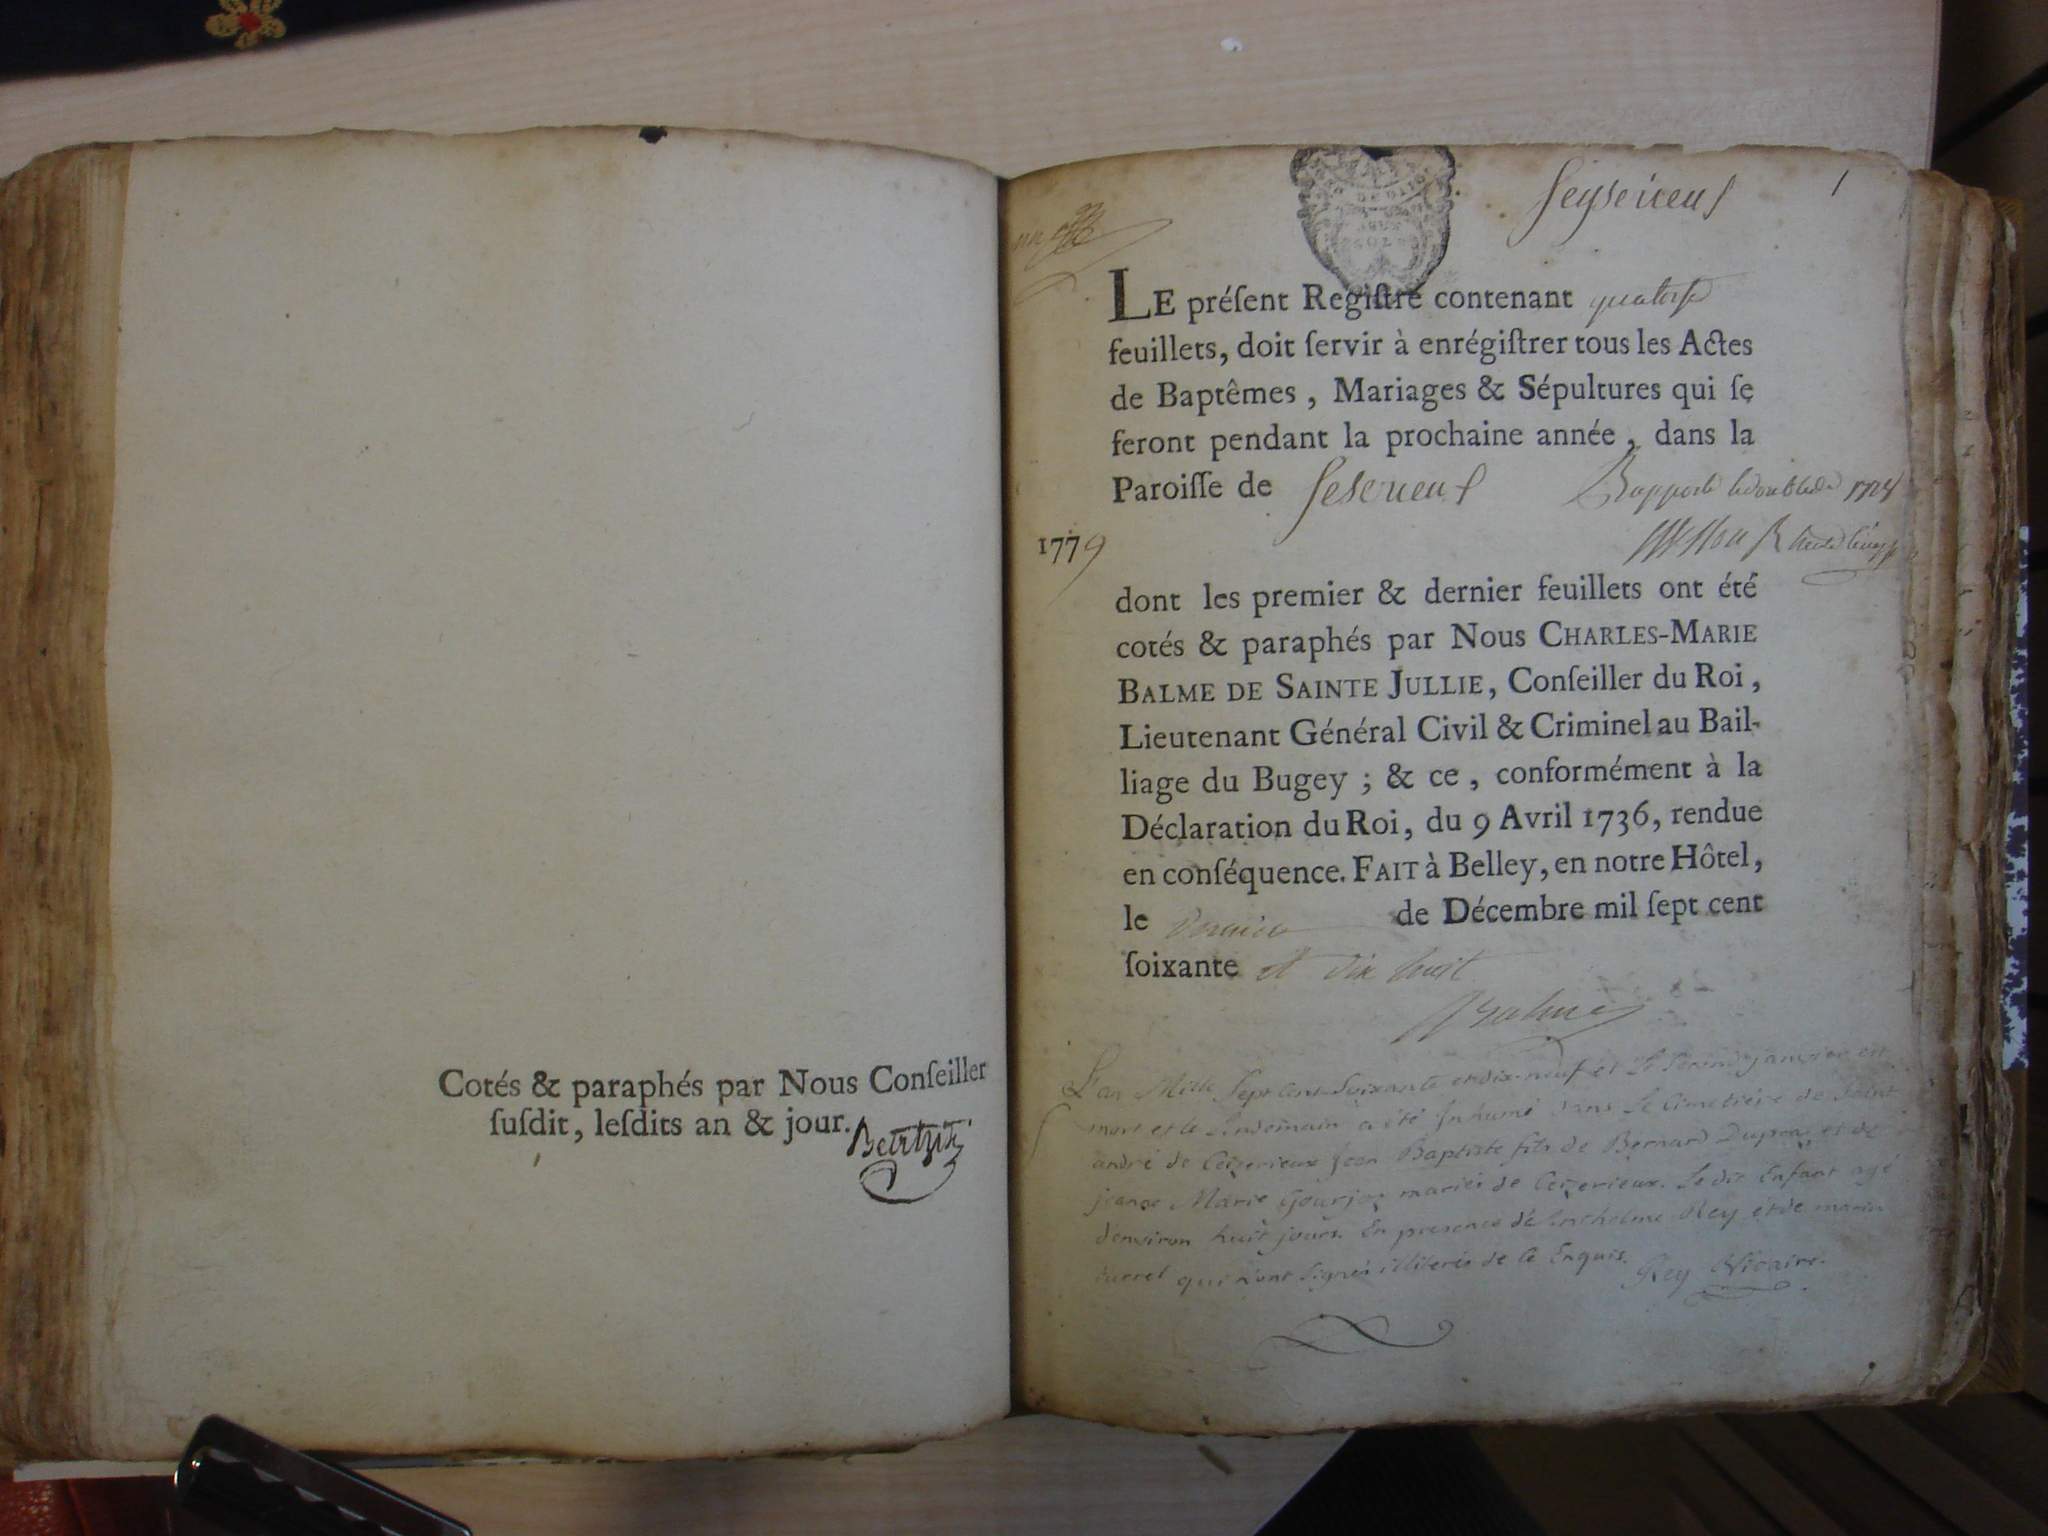 Cotés & paraphés par Nous Conſeiller
ſuſdit, leſdits an & jour.
1
LE préſent Regiſtre contenant quatorſe
feuillets, doit ſervir à enrégiſtrer tous les Actes
de Baptêmes, Mariages & Sépultures qui ſe
feront pendant la prochaine année, dans la
Paroiſſe de
Rapporté
1779
dont les premier & dernier feuillets ont été
cotés & paraphés par Nous CHARLES-MARIE
BALME DE SAINTE JULLIE, Conſeiller du Roi,
Lieutenant Général Civil & Criminel au Bail-
liage du Bugey; & ce, conformément à la
Déclaration du Roi, du 9 Avril 1736, rendue
en conſéquence. FAIT à Belley, en notre Hôtel,
le dernier de Décembre mil ſept cent
ſoixante et dix huit
Balme
L'an Mille Sept Cent Soixante et dix-neuf et le Second janvier est
mort et le lendemain a été Inhumé dans le Cimetière de Saint
andré de Ceizerieux jean Baptiste fils de Bernard Dupraz et de
jeanne Marie Gourjoz mariés de Ceizerieux. Le dit Enfant agé
denviron huit jours. En presence de Anthelme Rey et de marin
qui n'ont Signés illiterés de ce Enquis. Rey Vicaire.